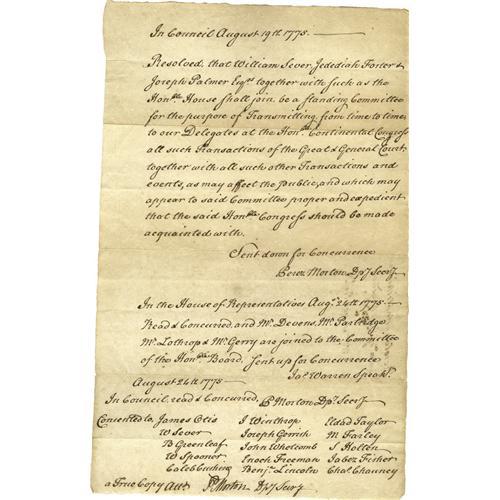 In Council August 19th. 1775.
Resolved, that William Sever, Jedediah Foster &
Joseph Palmer Esqrs. together with such as the
Honble. House shall join, be a standing Committee
for the purpose of Transmitting, from time to time,
to our Delegates at the Honble. Continental Congress
all such Transactions of the Great & General Court,
together with all such other Transactions and
events, as may affect the public, and which may
appear to said Committee proper and expedient
that the said Honble. Congress should be made
acquainted with.
Sent down for Concurrence
Perez Morton Dpy. Secry.
In the House of Representatives Augt. 24th. 1775.
Read & Concurred, and Mr. Devens, Mr. Partridge
Mr. Lothrop & Mr. Gerry are joined to the Committee
of the Honble. Board. Sent up for Concurrence
Jas. Warren Speakr.
August 24th. 1775
In Council, read & Concurred, P Morton Dpy. Secry.
Consented to, James Otis J Winthrop Eldad Taylor
W Sever Joseph Gerrish M Farley
B Greenleaf John Whetcomb S Holten
W Spooner Enoch Freeman Jabez Fisher
Caleb Cushing Benja. Lincoln Chas. Chauncy
a True Copy Attt. P. Morton Dpy Secry